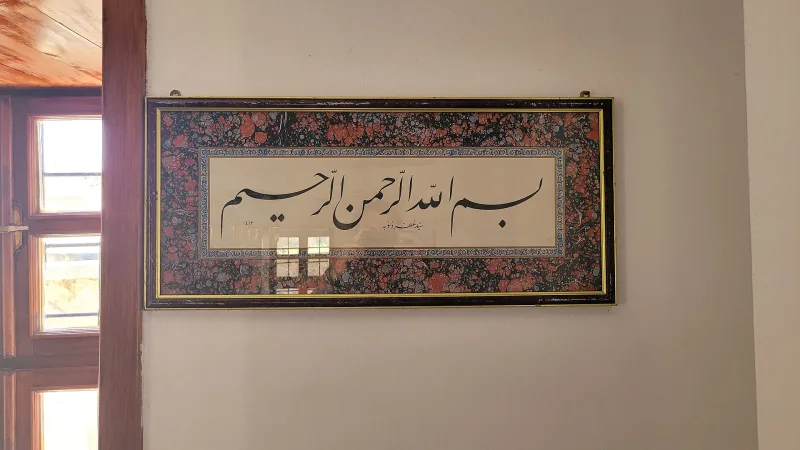 بسم الله الرّحمن الرّحيم
١٤١٣